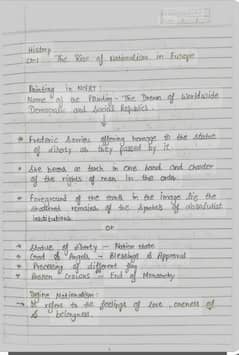 History
Ch-1 The Rise of Nationalism in Europe
Painting in NCERT:
Name of the Painting - The Dream of Worldwide
Democratic and Social Republics.
↓
* Frederic Sorrieu offering homage to the statue
of liberty as they passed by it.
* She bears a torch in one hand and charter
of the rights of man in the other.
* Foreground of the earth in the image lie the
shattered remains of the symbols of absolutist
institutions
OR
* Statue of liberty - Nation state
* God & Angels - Blessings & Approval
* Procession of different
* Broken Crowns - End of Monarchy
Define Nationalism:
→ It refers to the feelings of love, oneness of
& belongness.